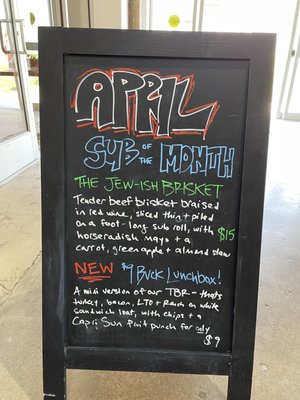 APRIL
SUB OF THE MONTH
THE JEW-ISH BRISKET
Tender beef brisket braised
in red wine, sliced thin + piled
on a foot-long sub roll, with $15
horseradish mayo + a
carrot, green apple + almond slaw
NEW $9 BUCK LUNCHBOX!
A mini version of our TBR - thats
turkey, bacon, LTO + Ranch on white
sandwich loaf, with chips + a
Capri Sun fruit punch for only
$9